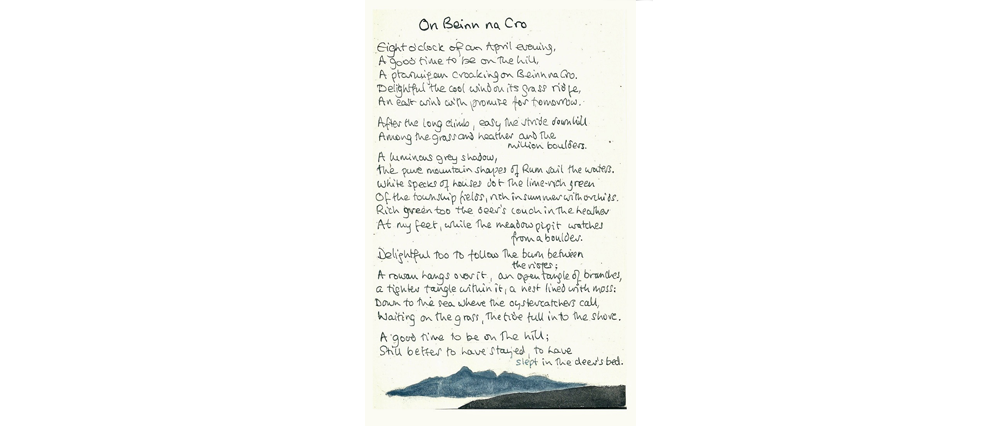 On Beinn na Cro
Eight o'clock of an April evening,
A good time to be on the hill,
A ptarmigan croaking on Beinn na Cro.
Delightful the cool wind on its grass ridge,
An east wind with promise for tomorrow.
After the long climb, easy the stride downhill
Among the grass and heather and the
million boulders.
A luminous grey shadow,
The pure mountain shapes of Rum sail the waters.
White specks of houses dot the lime-rich green
Of the township fields, rich in summer with orchids.
Rich green too the deer's couch in the heather
At my feet, while the meadow pipit watches
from a boulder.
Delightful too to follow the burn between
the ridges;
A rowan hangs over it, an open tangle of branches,
a tighter tangle within it, a nest lined with moss:
Down to the sea where the oystercatchers call,
Waiting on the grass, the tide full in to the shore.
A good time to be on the hill;
Still better to have stayed, to have
slept in the deer's bed.